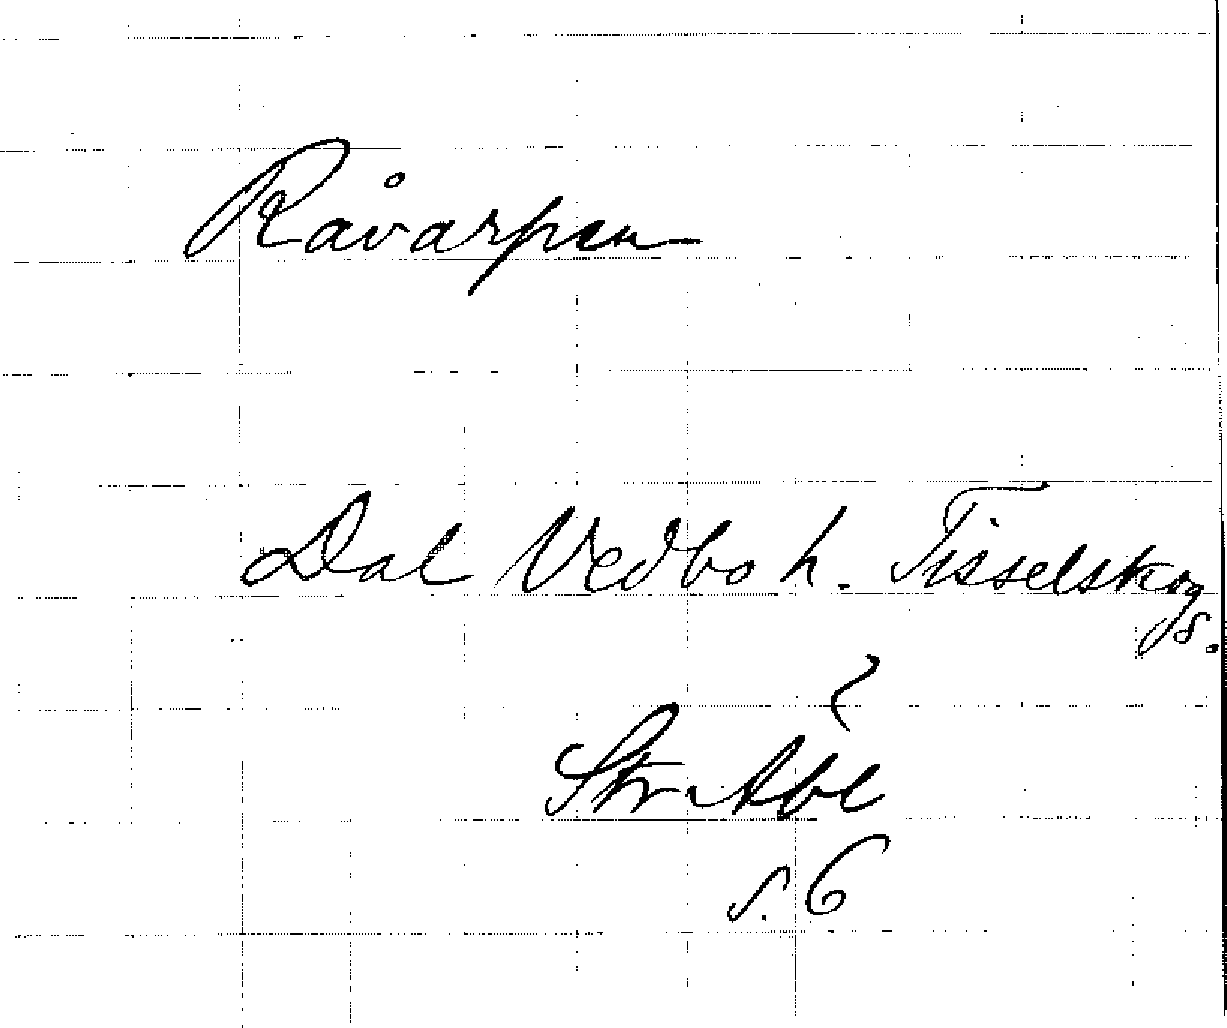 Råvarpen
Dal Vedbo h. Tisselskogs
s.
Str. Åbe
s. 6